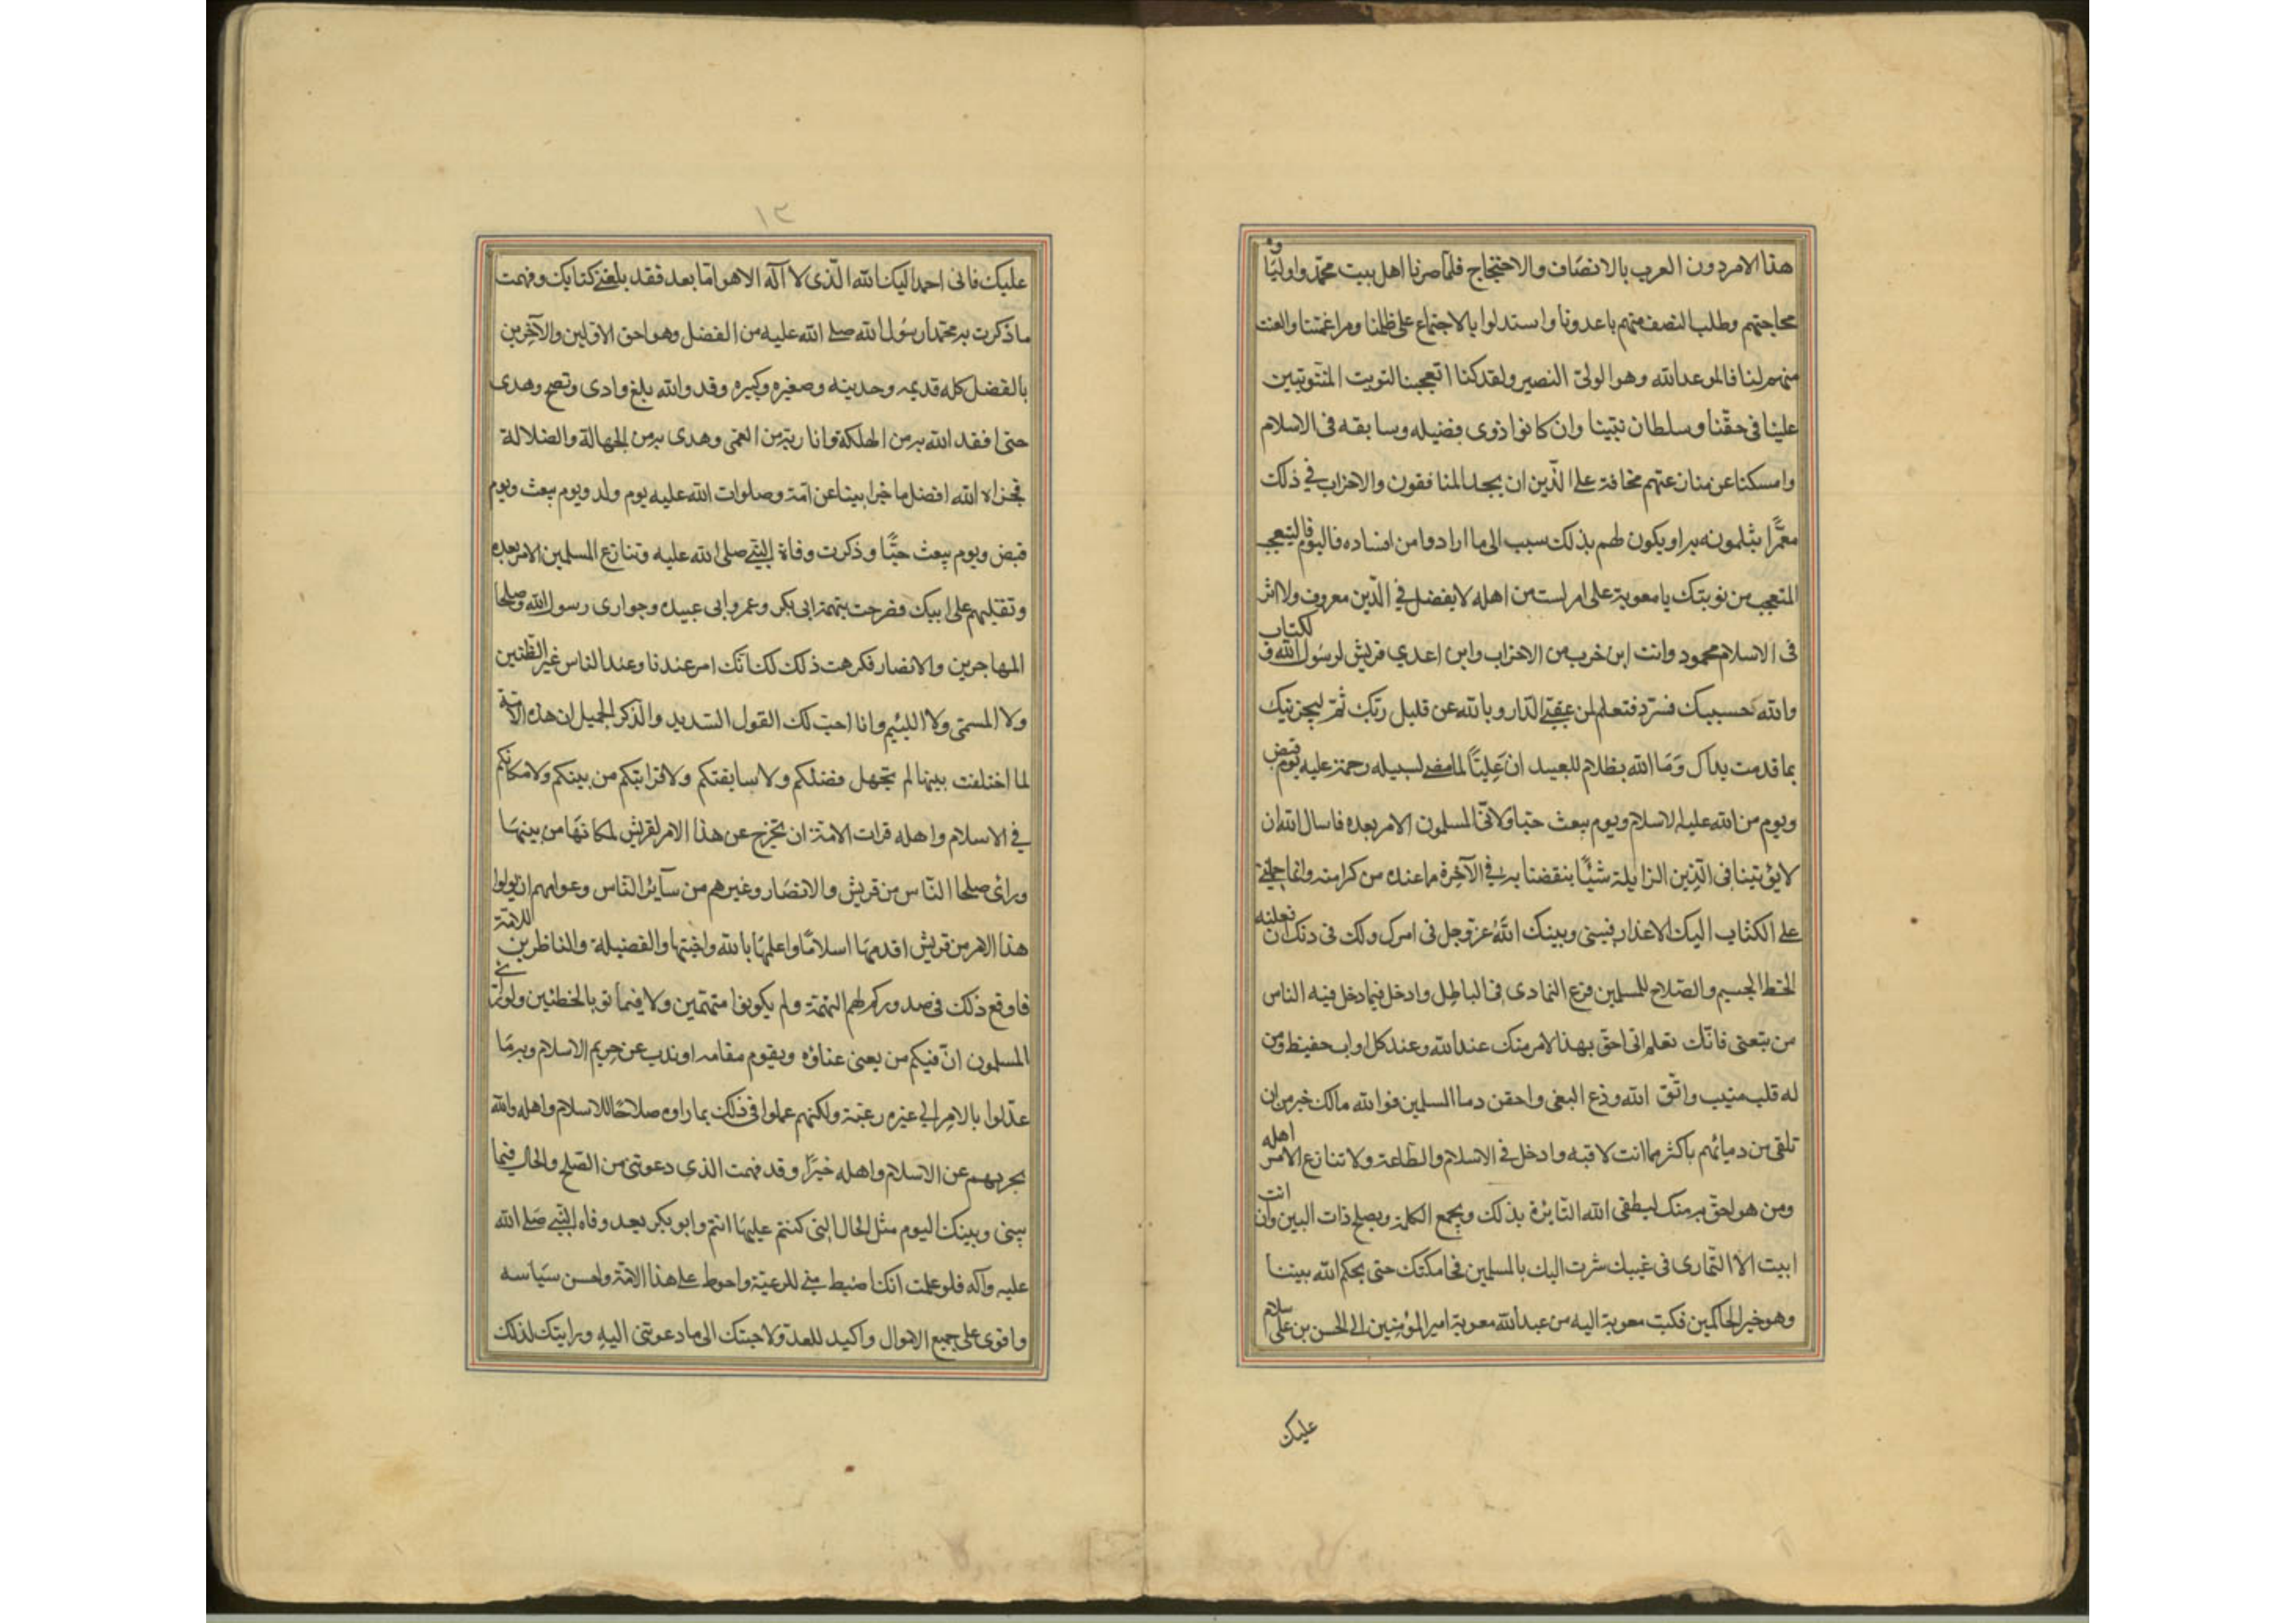 هذا الامر دون العرب بالانصاف والاحتجاج فلما صرنا اهل بيت محمد واوليآؤه
محاجتهم وطلب النصف منهم باعدونا واستدلوا بالاجتماع على ظلمنا ومراغمتنا والعنت
منهم لنا فالموعد الله وهو الولى النصير ولقد كنا اتعجبنا لتوبت المتوثبين
علينا فى حقنا وسلطان نبينا وان كانوا ذوى فضيله وسابقه فى الاسلام
وامسكنا عن منازعتهم مخافة على الدين ان يجد المنافقون والاحزاب فى ذلك
مغمزا يثلمونه به او يكون لهم بذلك سبب الى ما ارادوا من افساده فاليوم فاليتعجب
المتعجب من توبتك يا معوية على امر لست من اهله لا بفضل فى الدين معروف ولا اثر
فى الاسلام محمود وانت ابن حرب من الاحزاب وابن اعدى قريش لرسول الله ولكتاب
والله حسيبك فسترد فتعلم لمن عقبى الدار وبالله عن قليل ربك ثم ليجزينك
بما قدمت يداك وما الله بظلام للعبيد ان عليا لما مضى لسبيله رحمة عليه يوم قبض
ويوم من الله عليه الاسلام ويوم يبعث حيا ولانى المسلمون الامر بعده فاسال الله ان
لا يؤتينا فى الدنيا الزايلة شيئا ينقصنا به فى الآخرة ما عنده من كرامته وانما حملنى
على الكتاب اليك الاعذار فيبنى وبينك الله عز وجل فى امرك ولك فى ذلك ان فعلته
الخط الجسيم والصلاح للمسلمين فدع التمادى فى الباطل وادخل فيما دخل فيه الناس
من بيعتى فانك تعلم انى احق بهذا الامر منك عند الله وعند كل اواب حفيظ ومن
له قلب منيب واتق الله ودع البغى واحقن دما المسلمين فوالله مالك خير من ان
تلقى من دمائهم باكثر مما انت لاقيه وادخل فى الاسلام والطاعة ولا تنازع الامر اهله
ومن هو احق به منك ليطفى الله النائرة بذلك ويجمع الكلمة ويصلح ذات البين وان انت
ابيت الا التمارى فى غيبك سرت اليك بالمسلمين فحاكمتك حتى يحكم الله بيننا
وهو خير الحاكمين فكتب معوية اليه من عبد الله معوية امير المؤمنين الى الحسن بن على سلام
عليك
١٣
عليك فانى احمد اليك الله الذى لا اله الا هو اما بعد فقد بلغنى كتابك وفهمت
ما ذكرت به محمدا رسول الله صلى الله عليه من الفضل وهو احق الاولين والآخرين
بالفضل كله قديمه وحديثه وصغيره وكبيره وقد والله بلغ وادى ونصح وهدى
حتى افقد الله به من الهلكة وانار به من العمى وهدى به من الجهالة والضلالة
فجزاه الله افضل ما جزا نبيا عن امته وصلوات الله عليه يوم ولد ويوم بعث ويوم
قبض ويوم يبعث حيا وذكرت وفاة النبى صلى الله عليه وتنازع المسلمين الامر بعده
وتقلبهم على ابيك فصرحت بتهمة ابى بكر وعمر وابى عبيده وحوارى رسول الله وصلحا
المهاجرين والانصار فكرهت ذلك لك انك امر عندنا وعند الناس غير الظنين
ولا المسمى ولا اللئيم وانا احب لك القول السديد والذكر الجميل ان هذه الامة
لما اختلفت بينها لم تجهل فضلكم ولا سابقتكم ولا قرابتكم من بينكم ولا مكانكم
فى الاسلام واهله فرات الامة ان تخرج عن هذا الامر لقريش لمكانها من بينها
وراى صلحا الناس من قريش والانصار وغيرهم من سآئر الناس وعوامهم ان يولوا
هذا الامر من قريش اقدمها اسلاما واعلمها بالله واحبها والفضيلة والناظرين للامة
فاوقع ذلك فى صدوركم لهم التهمة ولم يكونوا متهمين ولا فيما اتو بالخطئين ولو راى
المسلمون ان فيكم من يعنى عناؤه ويقوم مقامه او يذب عن حريم الاسلام وبرما
عدلوا بالامر الى غيره رغبة ولكنهم عملوا فى ذلك بما راوه صلاحا للاسلام واهله والله
يجزيهم عن الاسلام واهله خيرا وقد فهمت الذى دعوتنى من الصلح والحال فيما
بينى وبينك اليوم مثل الحال التى كنتم عليها انتم وابو بكر بعد وفاه النبى صلى الله
عليه وآله فلو علمت انك اضبط منى للرعية واحوط على هذا الامة واحسن سياسه
واقوى على جميع الاموال واكيد للعدو لاجبتك الى ما دعوتنى اليه ورايتك لذلك